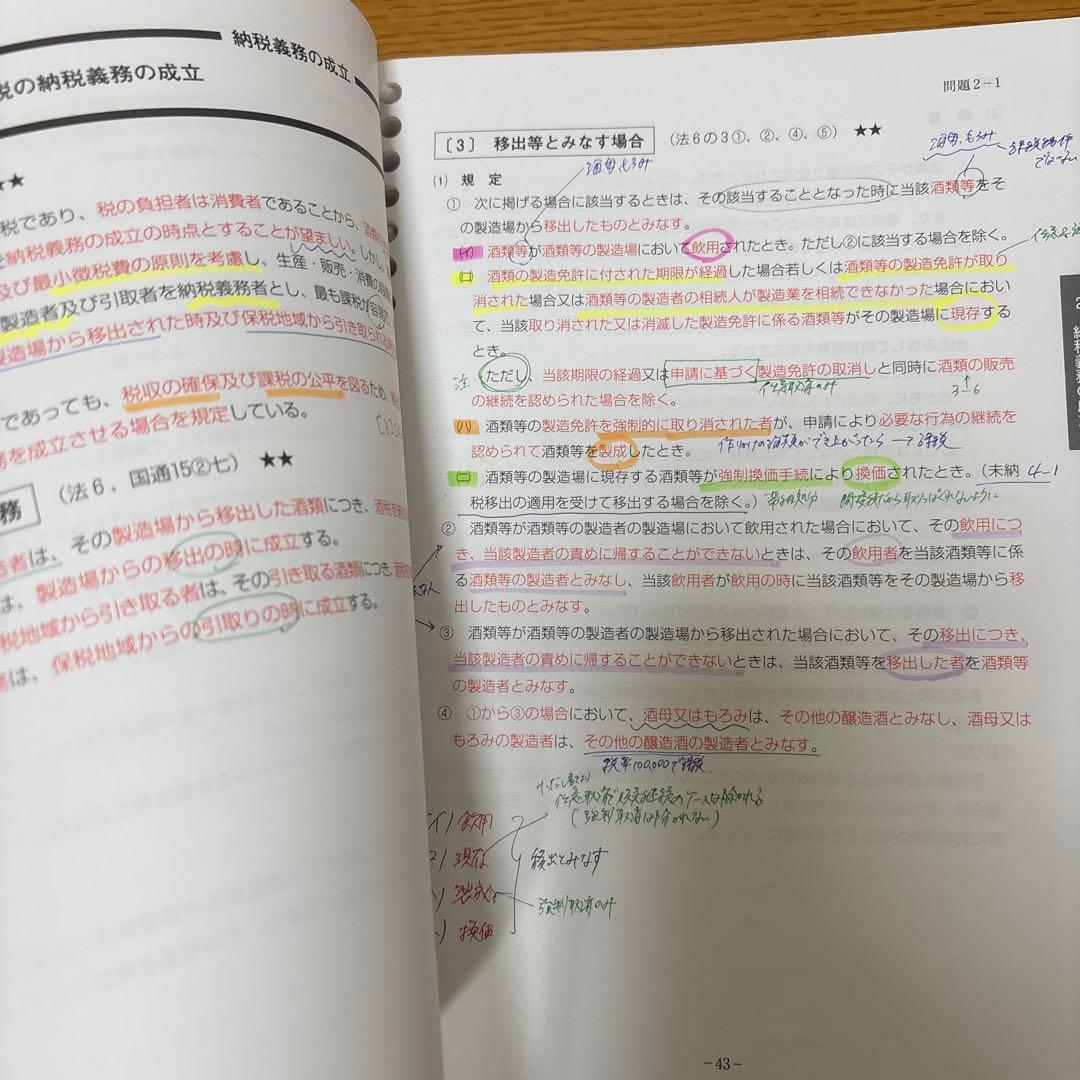 納税義務の成立
税の納税義務の成立
★★
税であり、税の負担者は消費者であることから、酒類の
を納税義務の成立の時点とすることが望ましい。しかし、
及び最小徴税費の原則を考慮し、生産・販売・消費の
製造者及び引取者を納税義務者とし、最も課税が容易
製造場から移出された時及び保税地域から引き取られる時
であっても、税収の確保及び課税の公平を図るため、
務を成立させる場合を規定している。
務 (法6、国通15②七) ★★
造者は、その製造場から移出した酒類につき、酒税を
は、製造場からの移出の時に成立する。
税地域から引き取る者は、その引き取る酒類につき、
は、保税地域からの引取りの時に成立する。
問題2-1
〔3〕 移出等とみなす場合 (法6の3①、②、④、⑤) ★★
酒母、もろみ
酒母、もろみ
⑴ 規 定
① 次に掲げる場合に該当するときは、その該当することとなった時に当該酒類等をそ
の製造場から移出したものとみなす。
(イ) 酒類等が酒類等の製造場において飲用されたとき。ただし②に該当する場合を除く。
(ロ) 酒類の製造免許に付された期限が経過した場合若しくは酒類等の製造免許が取り
消された場合又は酒類等の製造者の相続人が製造業を相続できなかった場合におい
て、当該取り消された又は消滅した製造免許に係る酒類等がその製造場に現存する
とき。
注 ただし、当該期限の経過又は申請に基づく製造免許の取消しと同時に酒類の販売
任意取消のみ 3-6
の継続を認められた場合を除く。
(ハ) 酒類等の製造免許を強制的に取り消された者が、申請により必要な行為の継続を
認められて酒類等を製成したとき。
(ニ) 酒類等の製造場に現存する酒類等が強制換価手続により換価されたとき。(未納 4-1
税移出の適用を受けて移出する場合を除く。) 滞納処分
② 酒類等が酒類等の製造者の製造場において飲用された場合において、その飲用につ
き、当該製造者の責めに帰することができないときは、その飲用者を当該酒類等に係
る酒類等の製造者とみなし、当該飲用者が飲用の時に当該酒類等をその製造場から移
出したものとみなす。
③ 酒類等が酒類等の製造者の製造場から移出された場合において、その移出につき、
当該製造者の責めに帰することができないときは、当該酒類等を移出した者を酒類等
の製造者とみなす。
④ ①から③の場合において、酒母又はもろみは、その他の醸造酒とみなし、酒母又は
もろみの製造者は、その他の醸造酒の製造者とみなす。
税率100,000で課税
任意取消で販売継続のケースは除かれる
(強制取消は除かれない)
イ) 飲用
ロ) 現存
移出とみなす
) 製成
強制取消のみ
) 換価
-43-